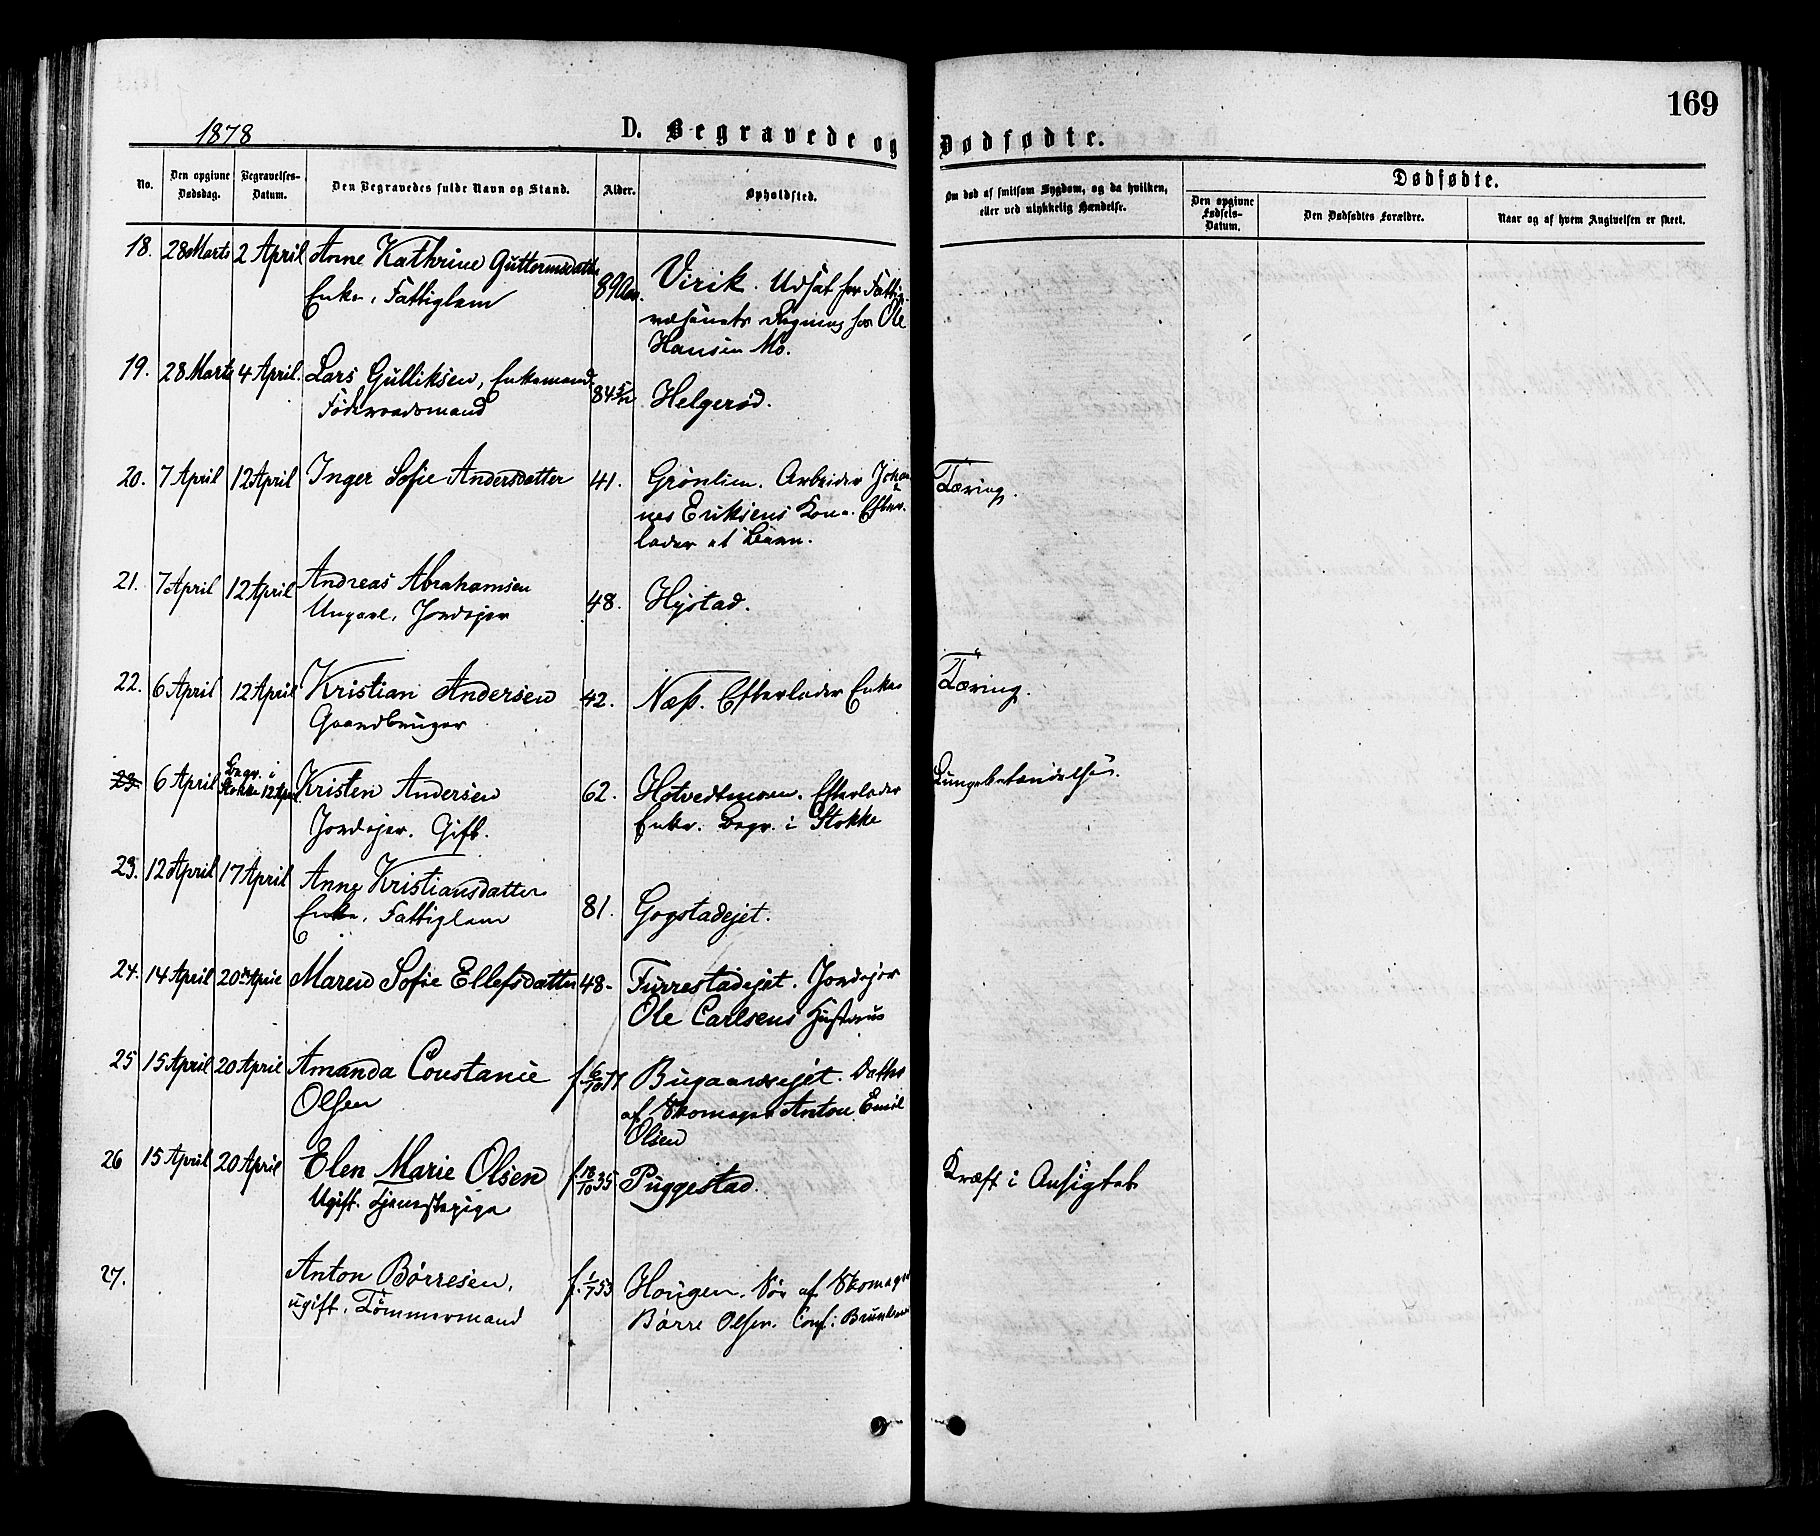 169
1878
D. Begravede og Dødfødte.
No.
Den opgivne Dødsdag.
Begravelses-Datum.
Den Begravedes fulde Navn og Stand.
Alder.
Opholdsted.
Om død af smitsom Sygdom, og da hvilken,
eller ved ulykkelig Hændelse.
Dødfødte.
Den opgivne Fødsels-Datum.
Den Dødfødtes Forældre.
Naar og af hvem Angivelsen er skeet.
18. 28 Marts 2 April Anne Kathrine Guttormsdatter
Enke, Fattiglem 89 Aar. Virik. Udsat for Fattig-
væsenets Regning hos Ole
Hansen Mo.
19. 28 Marts 4 April. Lars Gulliksen, Enkemand
Føderaadsmand 84 5/12 Helgerød.
20. 7 April 12 April Inger Sofie Andersdatter 41. Grønlien. Arbeider Johan- Tæring.
nes Eriksens Kone. Efter-
lader et Barn.
21. 7 April 12 April Andreas Abrahamsen
Ungkarl, Jordejer 48. Hystad.
22. 6 April 12 April Kristian Andersen 42. Næss. Efterlader Enke Tæring.
Gaardbruger
23. 6 April Begr. i Stokke 12 April Kristen Andersen 62. Hotvedtmoen. Efterlader Lungebetændelse.
Jordejer. Gift. Enke. Begr. i Stokke
23. 12 April 17 April Anne Kristiansdatter
Enke, Fattiglem 81. Gogstadejet.
24. 14 April 20de April Maren Sofie Ellefsdatter 48- Furrestadejet. Jordejer
Ole Carlsens Hustru
25 15 April 20 April Amanda Constance f. 6/10 77 Bugaardsejet. Datter
Olsen af Skomager Anton Emil
Olsen
26 15 April 20 April Elen Marie Olsen f. 18/10 35 Puggestad. Kræft i Ansigtet
Ugift. Tjenestepige
27. Anton Børresen, f. 1/7 53 Hougen. Søn af Skomager
ugift. Tømmermand Børre Olsen. Conf: